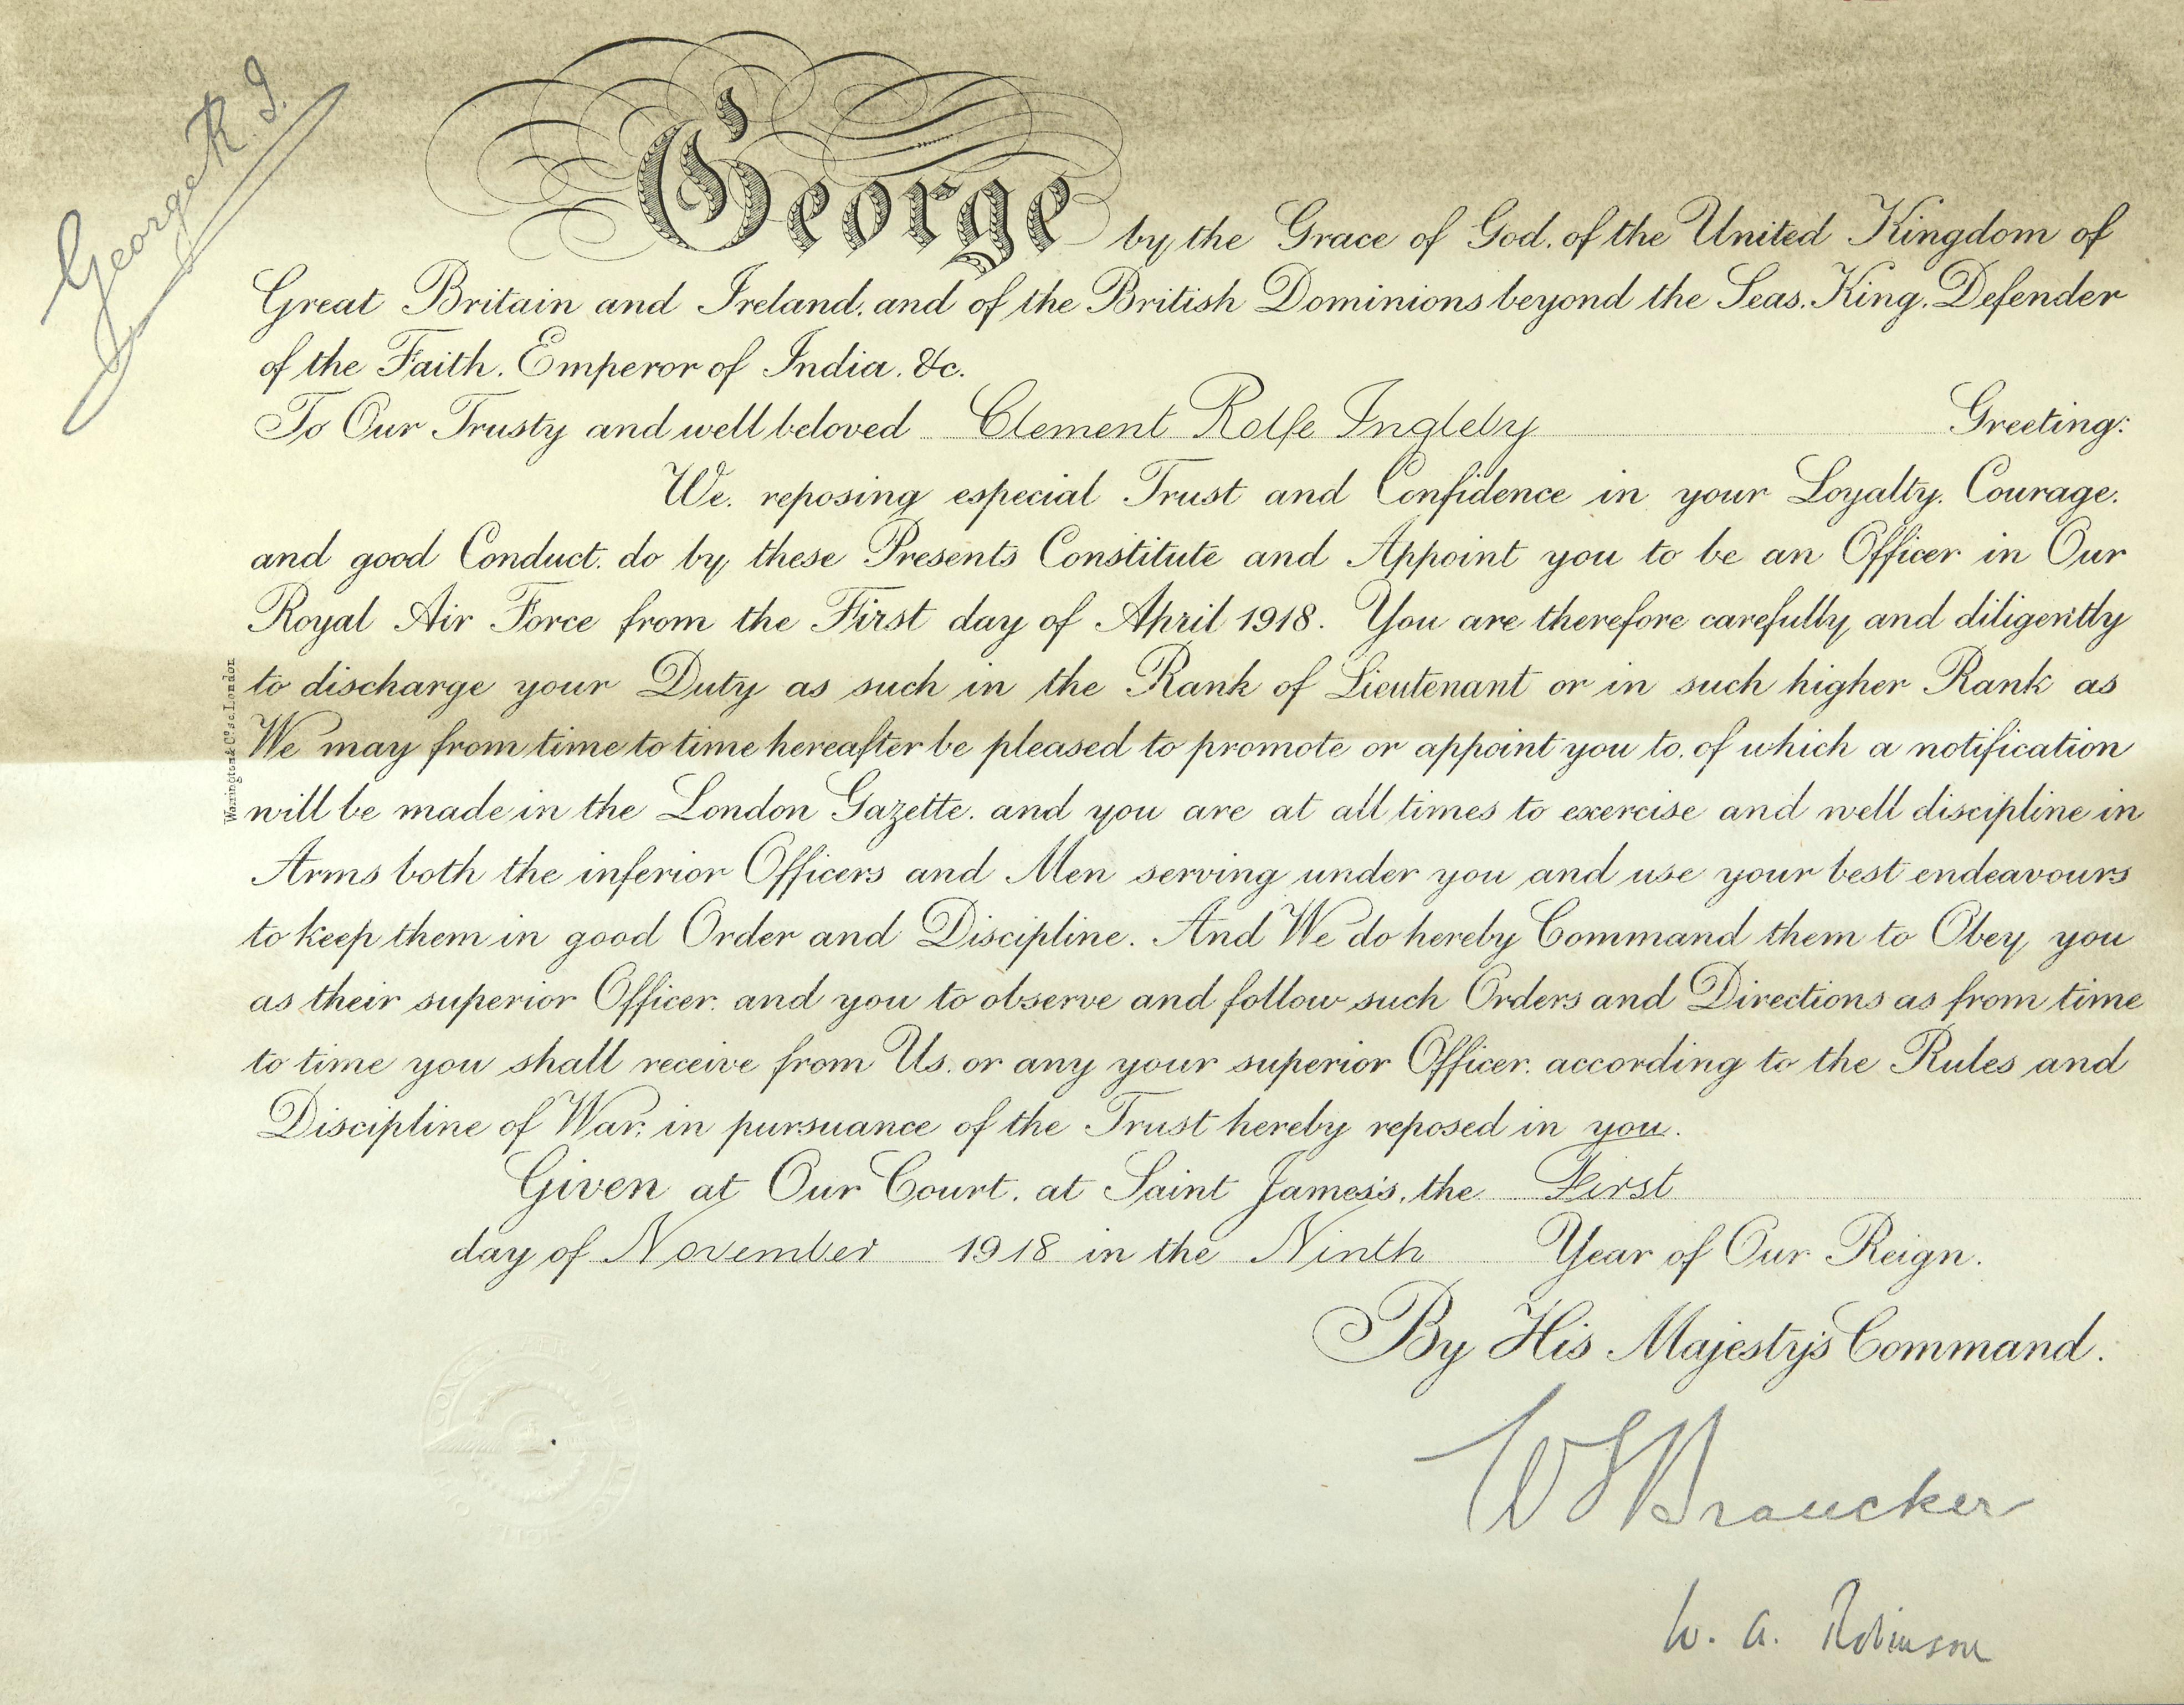 George R. I.
George by the Grace of God, of the United Kingdom of
Great Britain and Ireland, and of the British Dominions beyond the Seas, King, Defender
of the Faith, Emperor of India, &c.
To Our Trusty and well beloved Clement Rolfe Ingleby Greeting:
We, reposing especial Trust and Confidence in your Loyalty, Courage,
and good Conduct, do by these Presents Constitute and Appoint you to be an Officer in Our
Royal Air Force from the First day of April 1918. You are therefore carefully and diligently
to discharge your Duty as such in the Rank of Lieutenant or in such higher Rank as
We may from time to time hereafter be pleased to promote or appoint you to, of which a notification
will be made in the London Gazette, and you are at all times to exercise and well discipline in
Arms both the inferior Officers and Men serving under you and use your best endeavours
to keep them in good Order and Discipline. And We do hereby Command them to Obey you
as their superior Officer, and you to observe and follow such Orders and Directions as from time
to time you shall receive from Us, or any your superior Officer, according to the Rules and
Discipline of War, in pursuance of the Trust hereby reposed in you.
Given at Our Court, at Saint James's, the First
day of November 1918 in the Ninth Year of Our Reign.
By His Majesty's Command.
W S Brancker
W. A. Robinson
Warrington & Co. sc. London